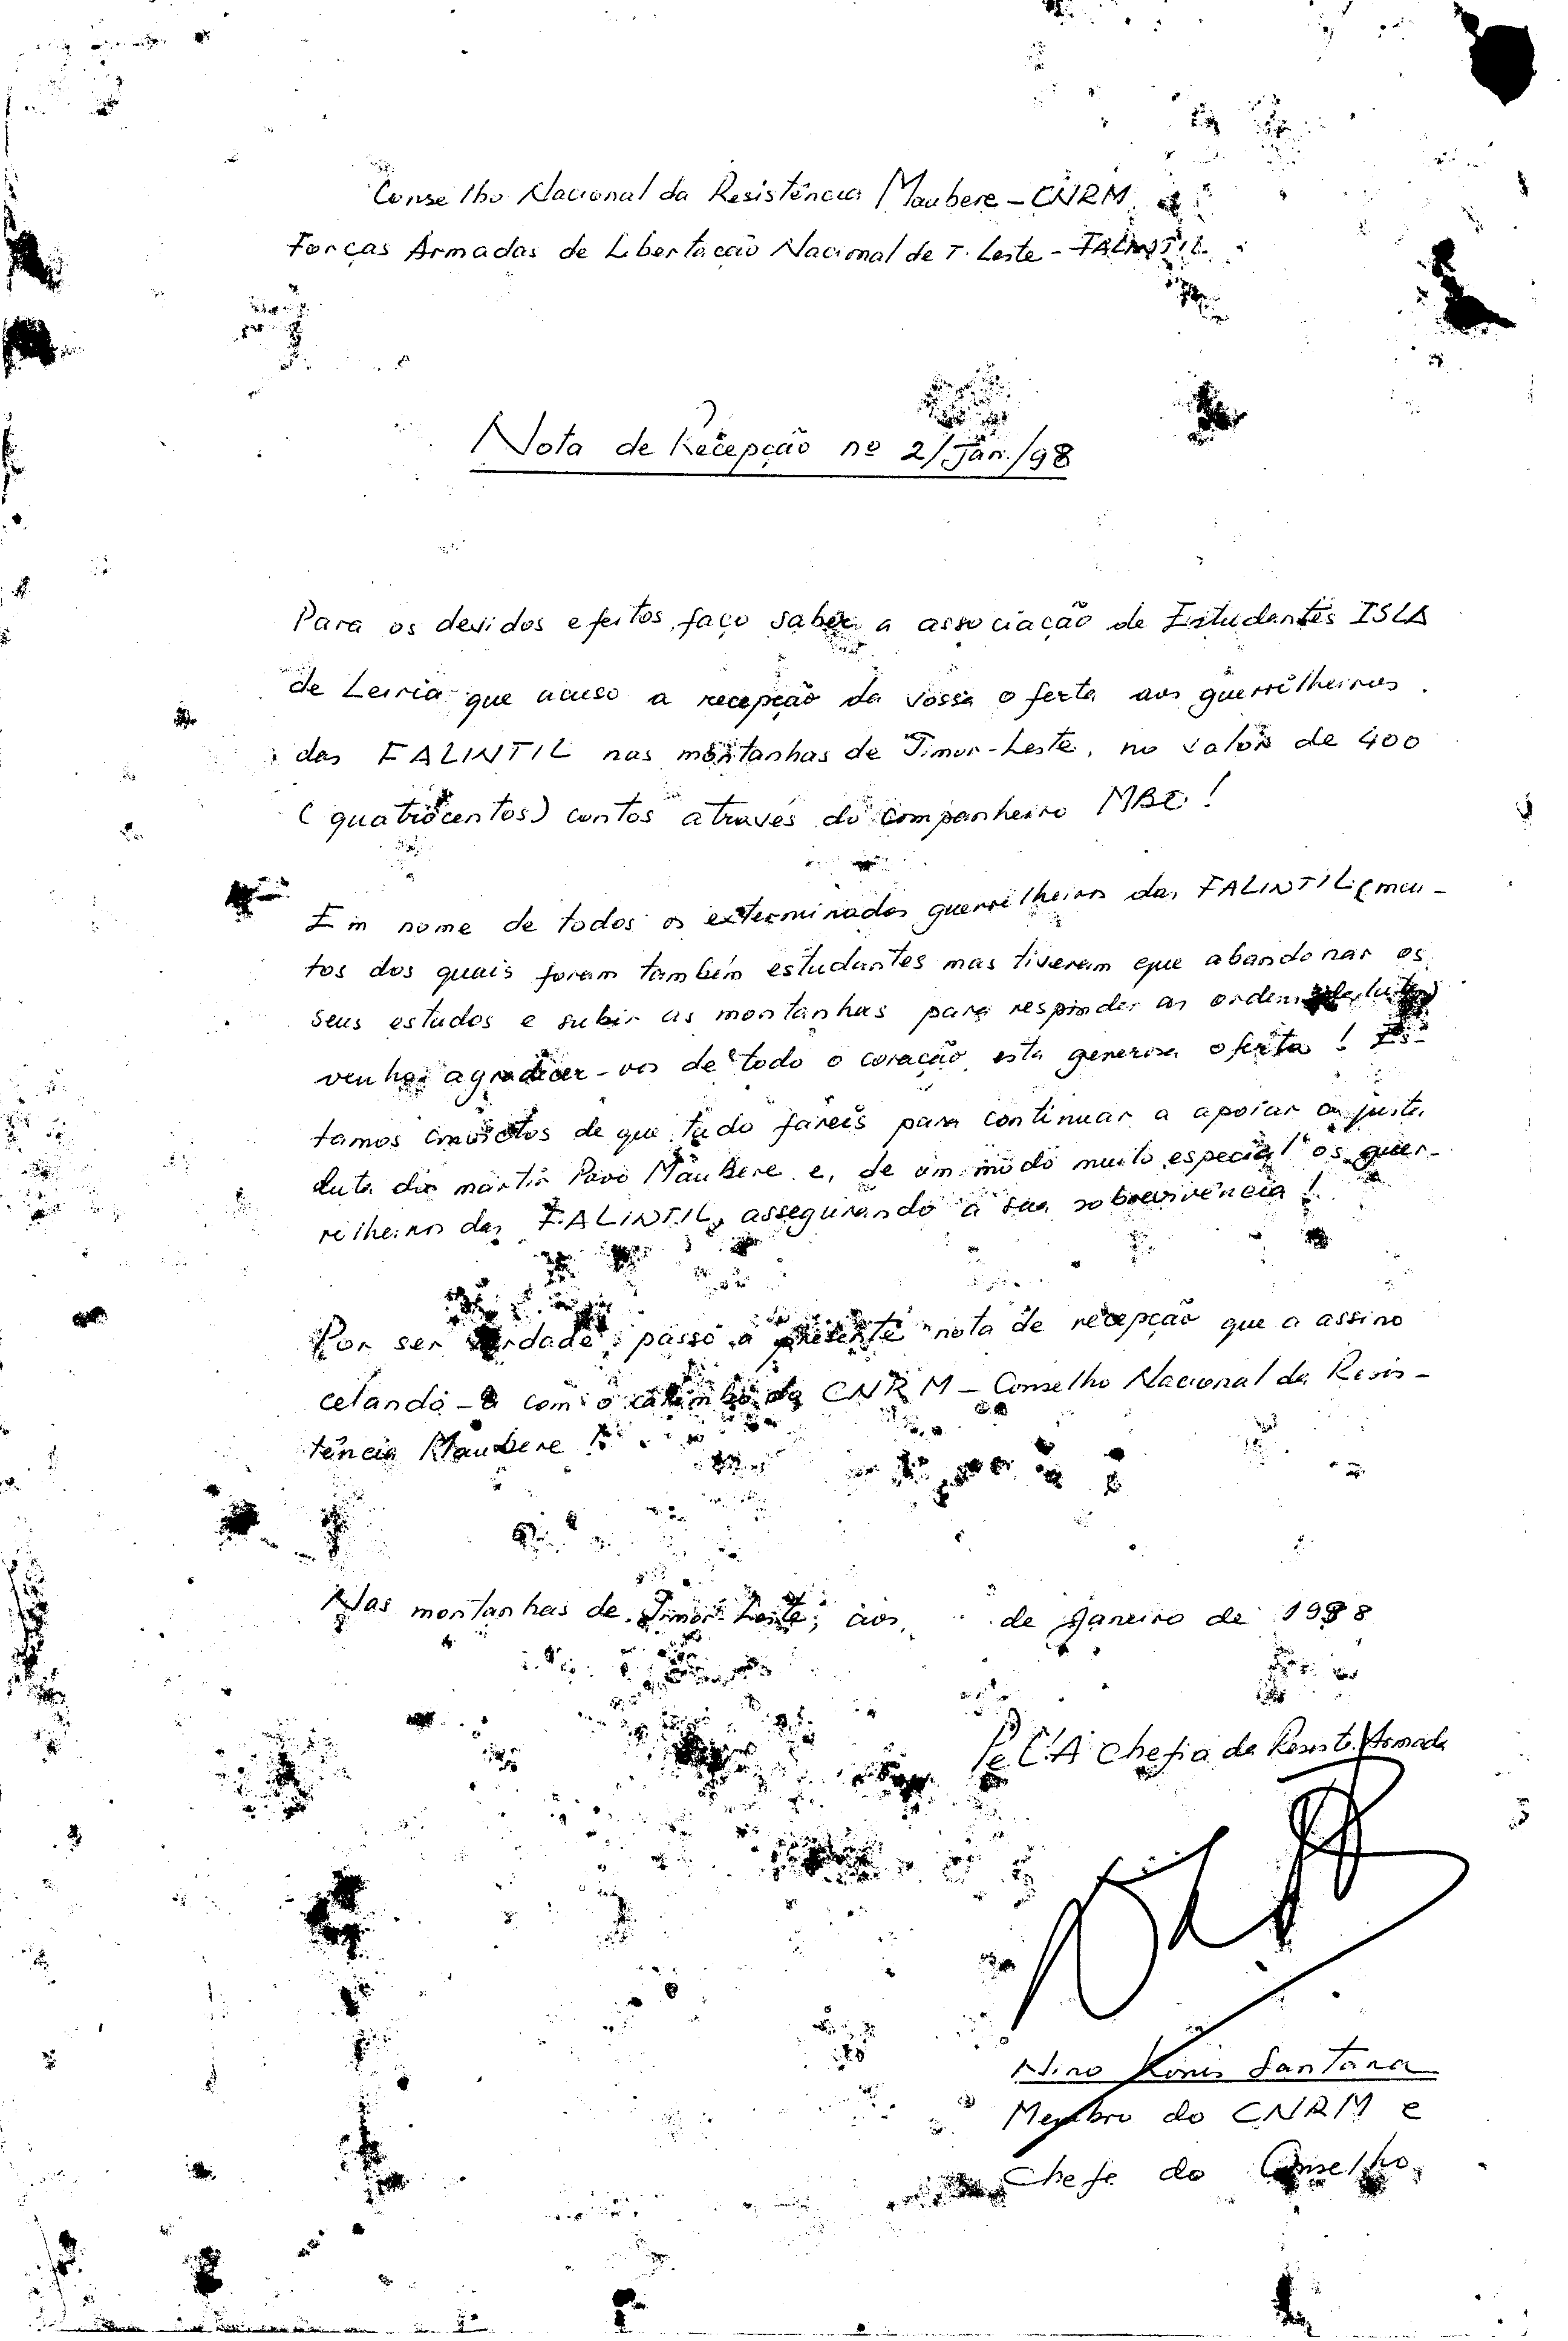 Conselho Nacional da Resistência Maubere - CNRM
Forças Armadas de Libertação Nacional de T. Leste - FALINTIL
Nota de Recepção nº 2/Jan./98
Para os devidos efeitos, faço saber a associação de Estudantes ISLA
de Leiria que acuso a recepção da vossa oferta aos guerrilheiros
das FALINTIL nas montanhas de Timor-Leste, no valor de 400
(quatrocentos) contos através do companheiro MBC!
Em nome de todos os exterminados guerrilheiros das FALINTIL (mui-
tos dos quais foram também estudantes mas tiveram que abandonar os
seus estudos e subir as montanhas para responder as ordens de luta)
venho agradecer-vos de todo o coração esta generosa oferta! Es-
tamos convictos de que tudo fareis para continuar a apoiar a justa
luta do martir Povo MauBere e, de um modo muito especial os guer-
rilheiros das FALINTIL, assegurando a sua sobrevivência!
Por ser verdade, passo a presente nota de recepção que a assino
celando-a com o carimbo do CNRM - Conselho Nacional da Resis-
tência Maubere!
Nas montanhas de Timor-Leste, aos de Janeiro de 1998
Pe C.A Chefia da Resist. Armada
Nino Konis Santana
Membro do CNRM e
Chefe do Conselho